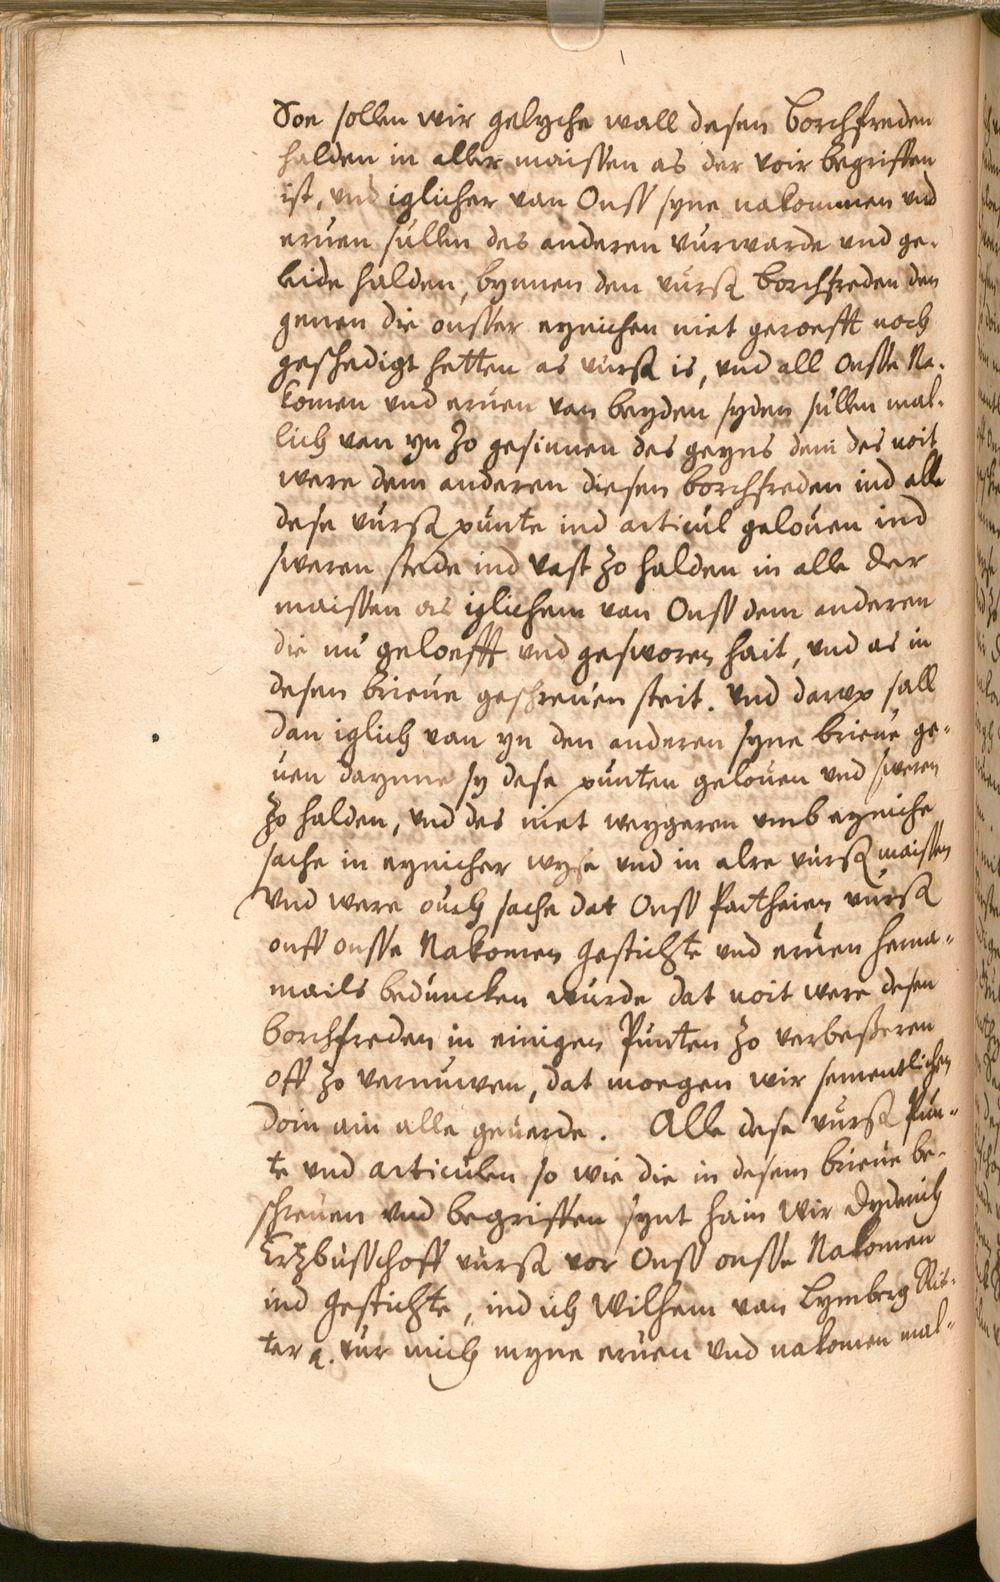 Soe sollen wir gelyche wall desen borchfreden
halden in aller maissen as der voir begriffen
ist, und iglicher van Onss syne nakommen und
eruen sullen des anderen vurwarde und ge-
leide halden, bynnen den vurß borchfreden den
genen die onsser eynichen niet geroefft noch
geschedigt hetten as vurß is, und all Onsse Na-
komen und eruen van beyden syden sullen mal-
lich van yn zo gesinnen des geyns dem des noit
were dem anderen diesen borchfreden ind alle
dese vurß punte ind articul gelouen ind
sweren stede ind vast zo halden in alle der
maissen as iglichem van Onss dem anderen
die nu geloefft und gesworen hait, und as in
desen brieue geschreuen steit. Und darup sall
dan iglich van yn den anderen syne brieue ge-
uen daynne sy dese punten gelouen und sweren
zo halden, und des niet weygeren umb eyniche
sache in eynicher wyse und in alre vurß maissen
Und were ouch sache dat Onss Partheien vurß
onss onsse Nakomen Gestichte und eruen herna-
mails beduncken wurde dat noit were desen
borchfreden in einigen Punten zo verbesseren
off zo vernuwen, dat moegen wir sementlichen
doin ain alle geuerde. Alle dese vurß Pun-
te und articulen so wie die in desem brieue be-
schreuen und begriffen synt hain Wir Dyderich
Ertzbusschoff vurß vor Onss onsse Nakomen
ind Gestichte, ind ich Wilhem van Lymberg Rit-
ter &. vur mich myne eruen und nakomen mal-